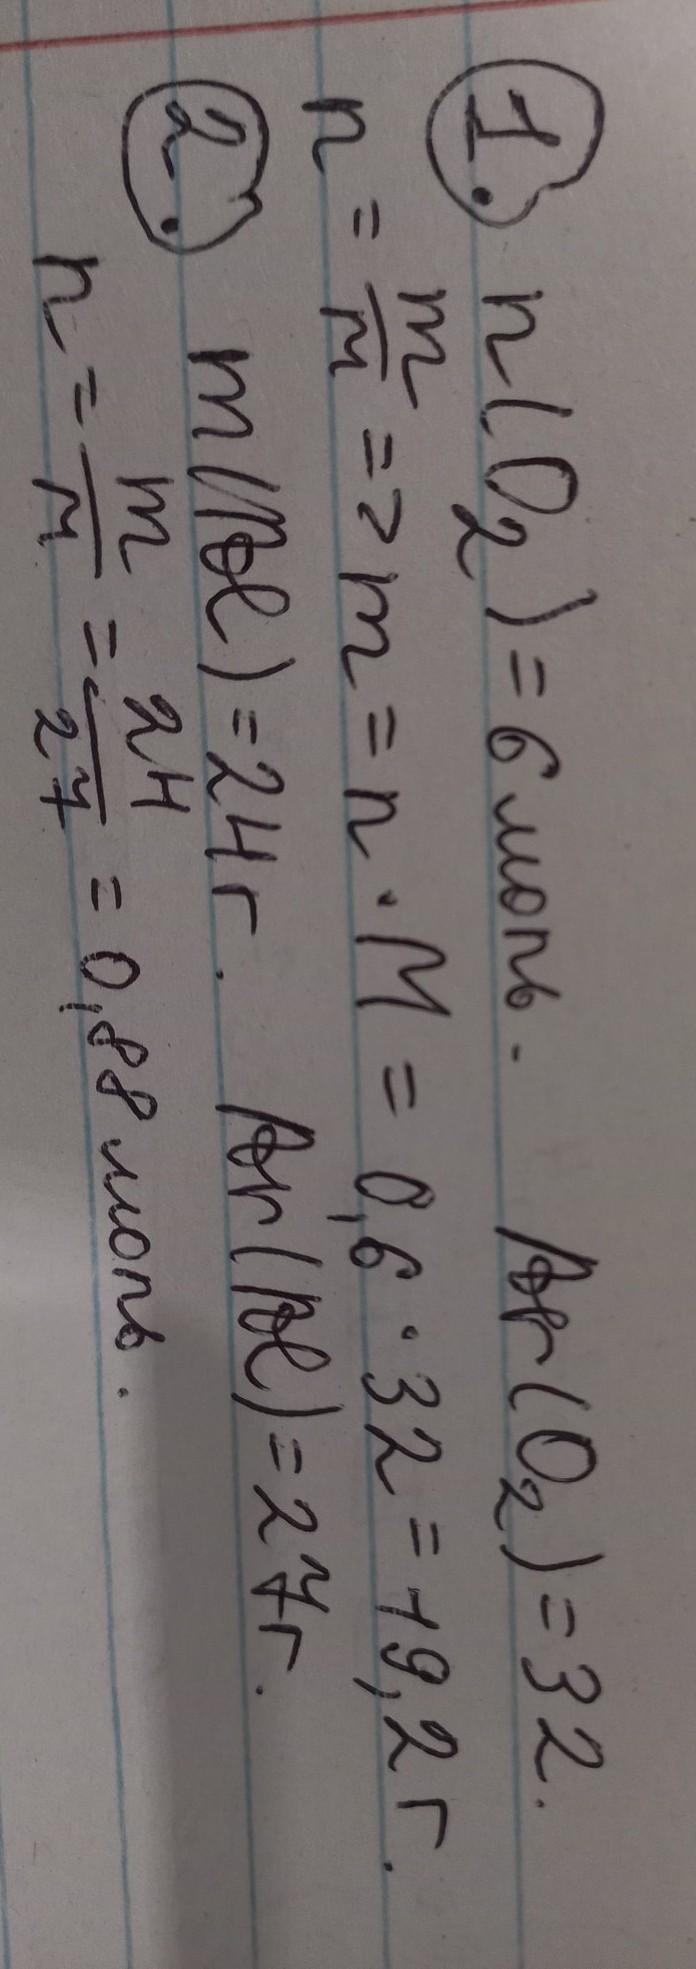 1. n(O2) = 6 моль. Ar(O2) = 32.
n = m/M => m = n · M = 0,6 · 32 = 19,2 г.
2. m(Al) = 24 г. Ar(Al) = 27 г.
n = m/M = 24/27 = 0,88 моль.